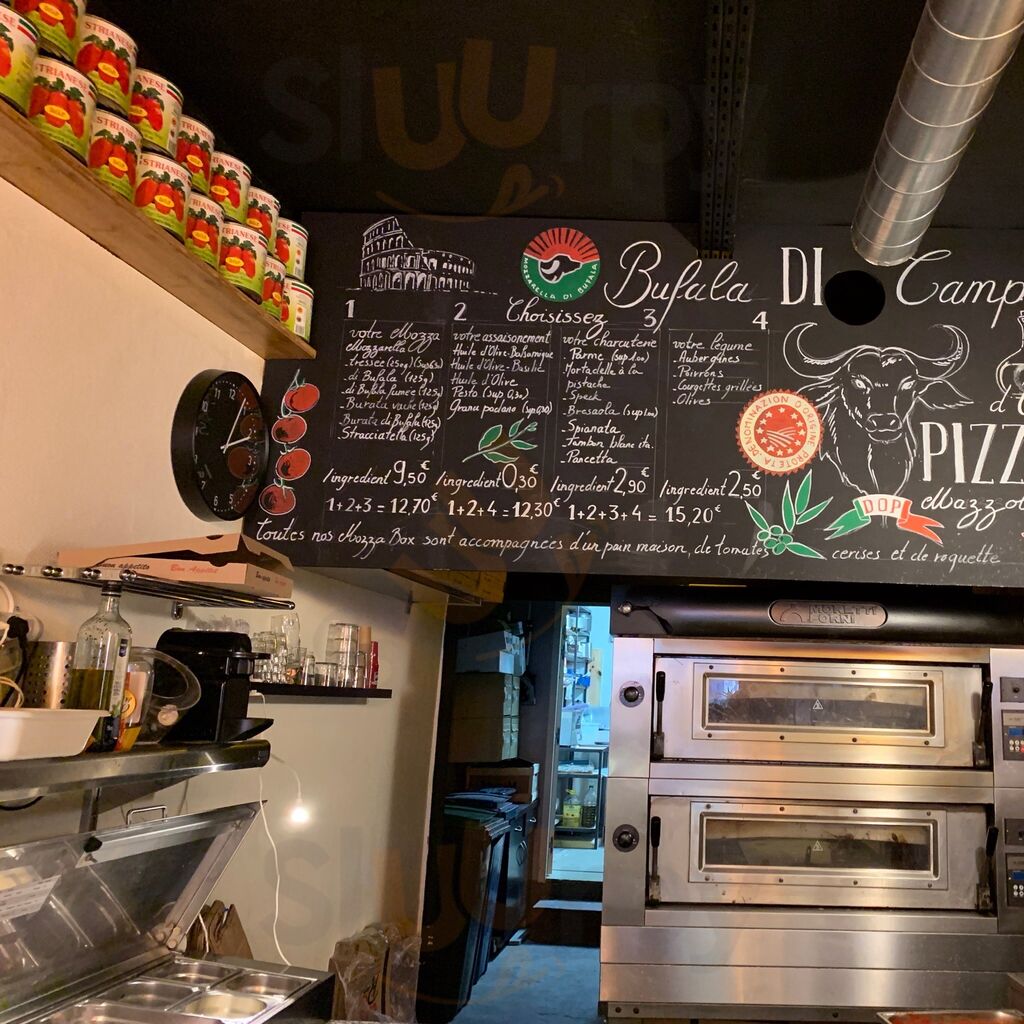 STRIANESE
STRIANESE
STRIANESE
STRIANESE
Sluurpy
MOZZARELLA DI BUFALA
Bufala DI Camp
Choisissez
1
votre Mozza
Mozzarella
Tressée (250g)
di Bufala (125g)
di Bufala fumée (125g)
Burata vache (125g)
Burata di Bufala (125g)
Stracciatella (125g)
/ingredient 9,50€
2
votre assaisonement
Huile d'Olive-Balsamique
Huile d'Olive-Basilic
Huile d'Olive
Pesto (sup 0,30)
Grana padano (sup 0,30)
/ingredient 0,30€
3
votre charcuterie
Parme (sup 1.00)
Mortadelle à la
pistache
Speck
Bresaola (sup 1.00)
Spianata
Jambon blanc ita.
Pancetta
/ingredient 2,90€
4
votre légume
Aubergines
Poivrons
Courgettes grillées
Olives
/ingredient 2,50€
1+2+3 = 12,70€ 1+2+4 = 12,30€ 1+2+3+4 = 15,20€
toutes nos Mozza Box sont accompagnées d'un pain maison, de tomates cerises et de roquette
DENOMINAZION D'ORIGINE PROTETA
DOP
d'O
PIZZ
Mozzo
buon appetito
Bon Appétit
MORETTI
FORNI